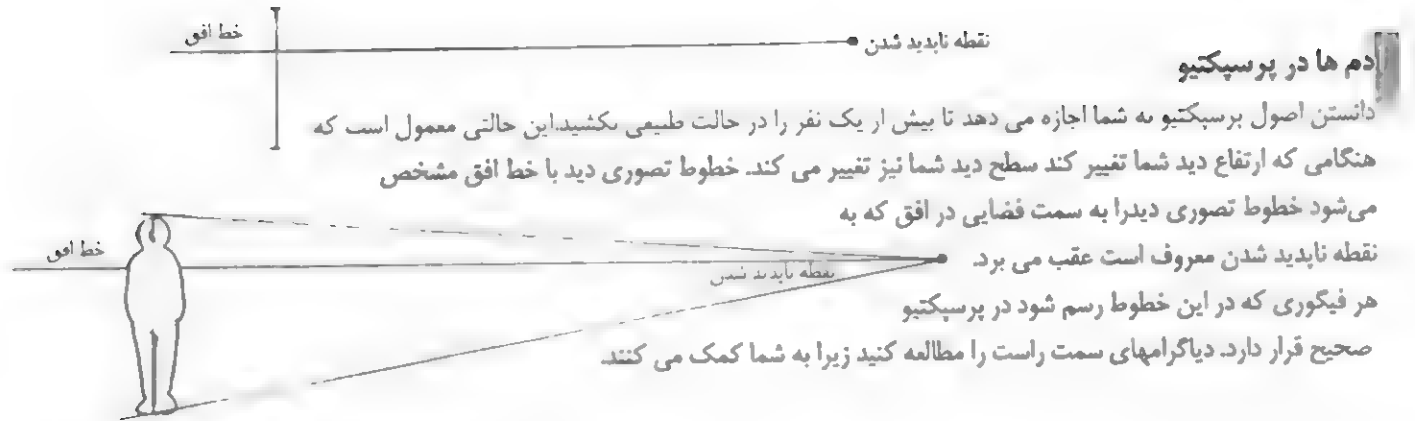 خط افق
نقطه ناپدید شدن
دم ها در پرسپکتیو
دانستن اصول پرسپکتیو به شما اجازه می دهد تا بیش از یک نفر را در حالت طبیعی بکشید.این حالتی معمول است که
هنگامی که ارتفاع دید شما تغییر کند سطح دید شما نیز تغییر می کند. خطوط تصوری دید با خط افق مشخص
می‌شود خطوط تصوری دیدرا به سمت فضایی در افق که به
نقطه ناپدید شدن معروف است عقب می برد.
هر فیگوری که در این خطوط رسم شود در پرسپکتیو
صحیح قرار دارد. دیاگرامهای سمت راست را مطالعه کنید زیرا به شما کمک می کنند.
خط افق
نقطه ناپدید شدن